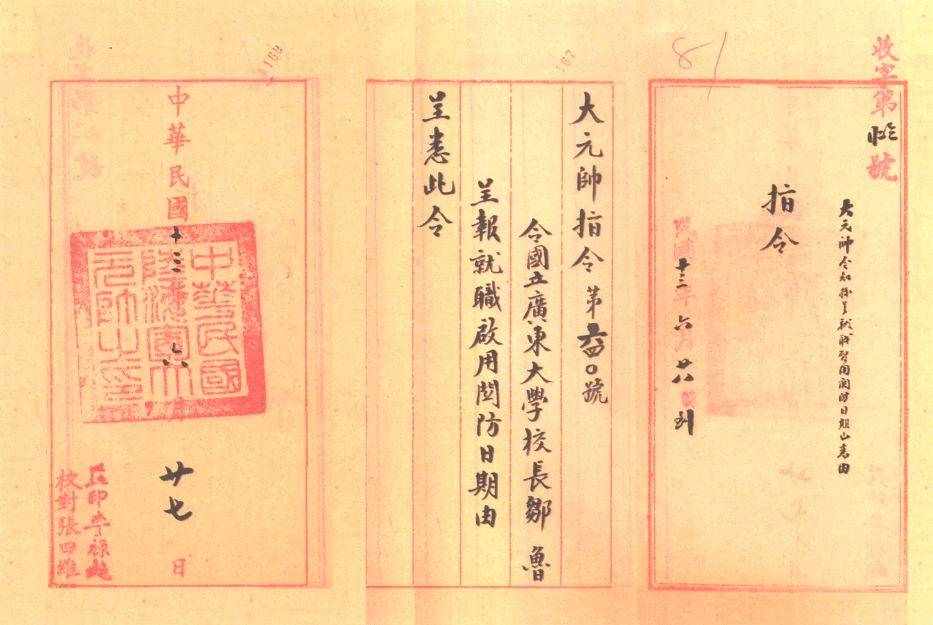 收字第 號
大元帥令知
指令
民國十三年六月廿八日到
81
167
大元帥指令第六四〇號
令國立廣東大學校長鄒 魯
呈報就職啟用關防日期由
呈悉此令
169
中華民國十三年六月廿七日
中華民國陸海軍大元帥之印
監印李祿超
校對張四維